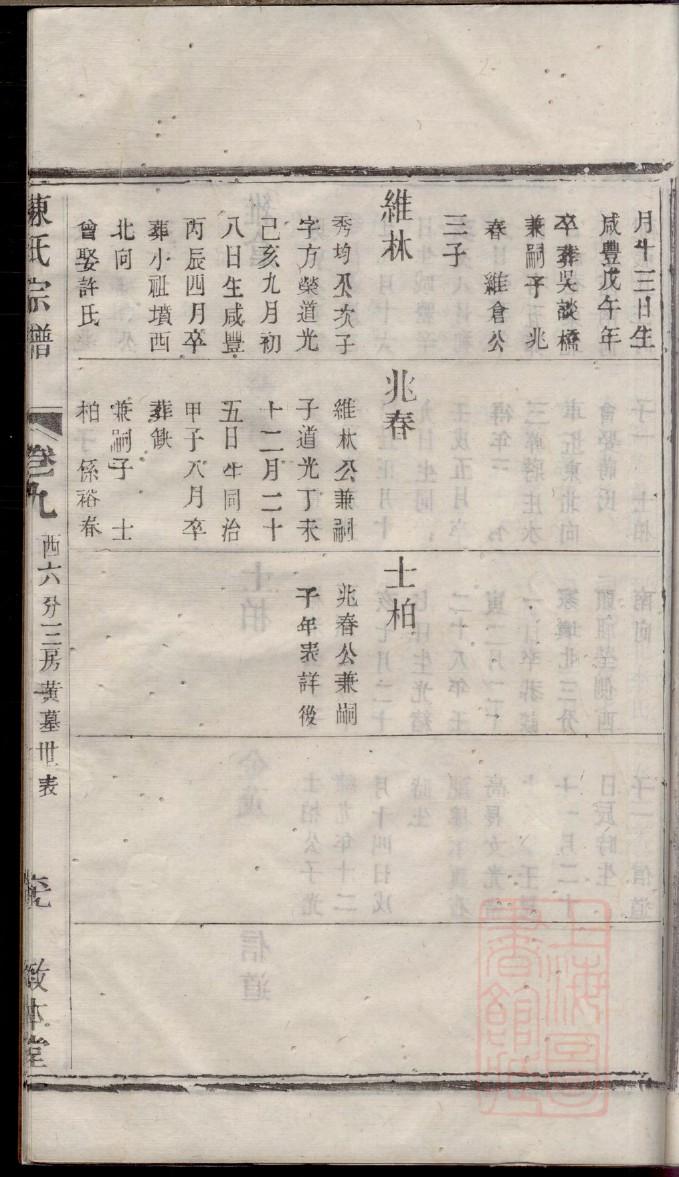 月十三日生
咸豐戊午年
卒葬吳談橋
兼嗣子 兆
春 維倉公
三子
維林
秀均公次子
字方榮道光
己亥九月初
八日生咸豐
丙辰四月卒
葬小祖墳西
北向
曾娶許氏
兆春
維林公兼嗣
子道光丁未
十二月二十
五日生同治
甲子八月卒
葬缺
兼嗣子 士
柏 係裕春
士柏
兆春公兼嗣
子年表詳後
陳氏宗譜
卷九
西六分三房黃墓世表
敬本堂
上海圖書館藏